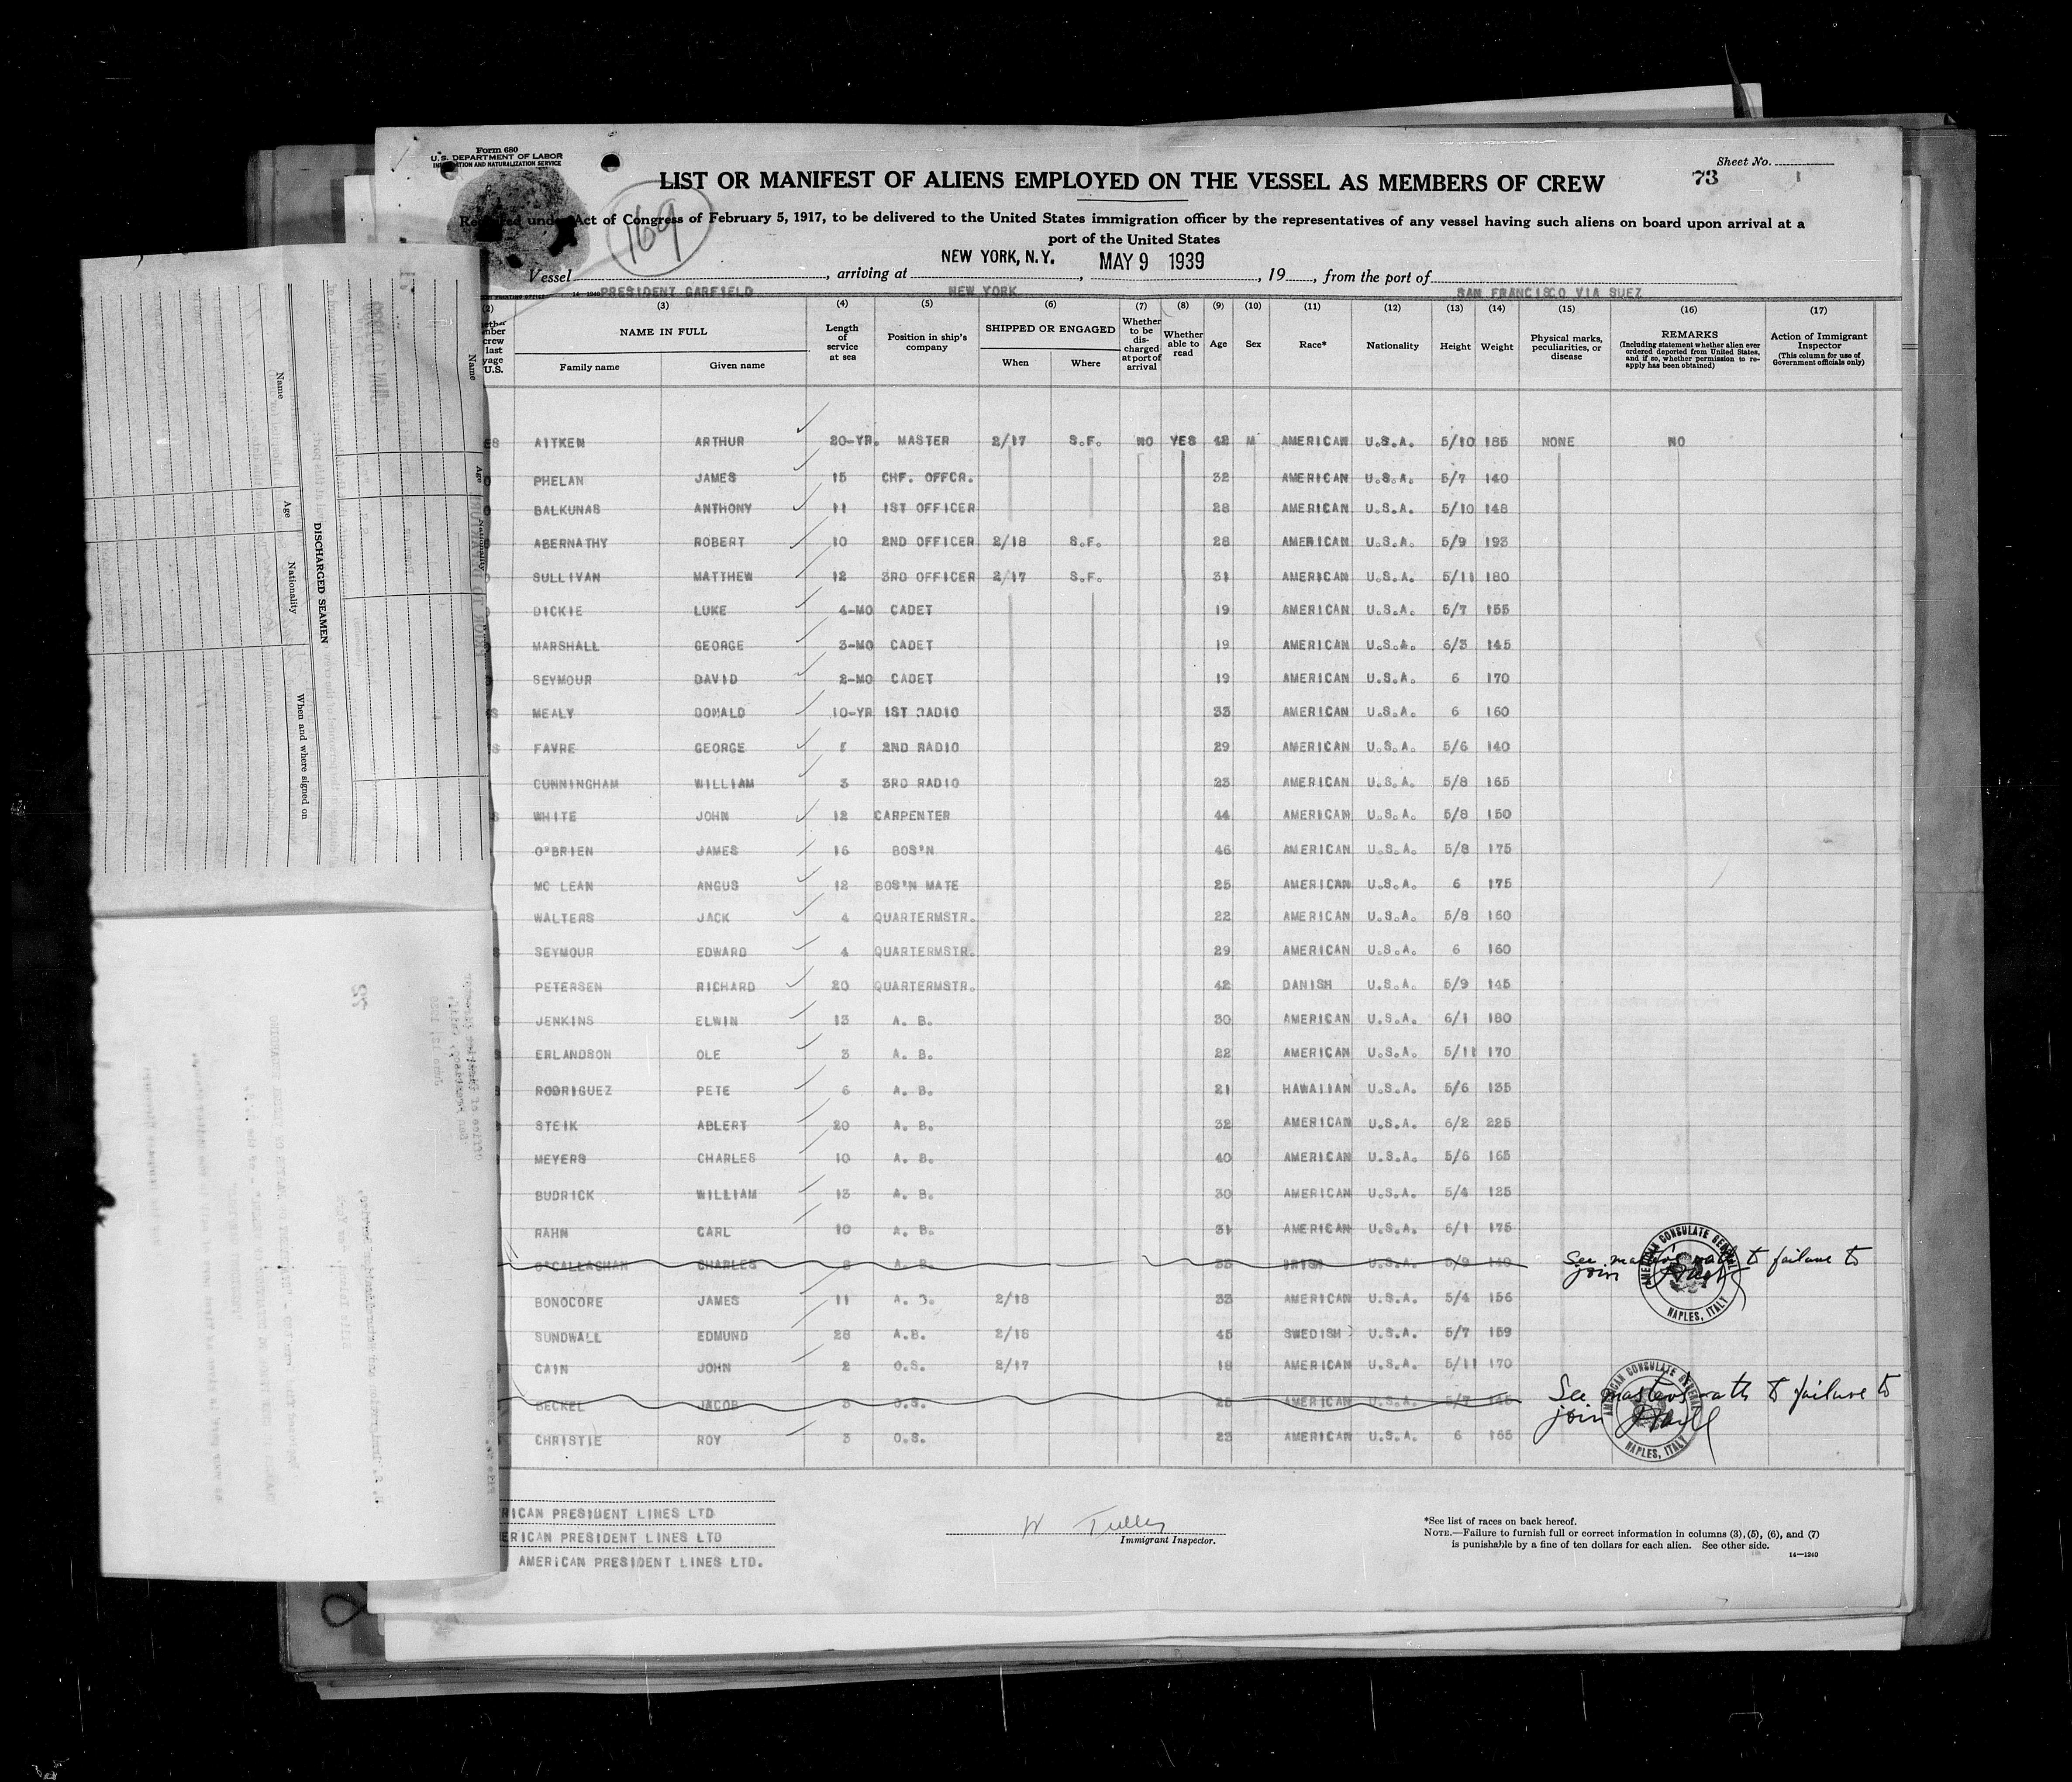 Form 680
U.S. DEPARTMENT OF LABOR
IMMIGRATION AND NATURALIZATION SERVICE
Sheet No.
73
1
LIST OR MANIFEST OF ALIENS EMPLOYED ON THE VESSEL AS MEMBERS OF CREW
169
Required under Act of Congress of February 5, 1917, to be delivered to the United States immigration officer by the representatives of any vessel having such aliens on board upon arrival at a
port of the United States
NEW YORK, N.Y. MAY 9 1939
Vessel , arriving at , , 19 , from the port of
PRESIDENT GARFIELD NEW YORK SAN FRANCISCO VIA SUEZ
(2) (3) (4) (5) (6) (7) (8) (9) (10) (11) (12) (13) (14) (15) (16) (17)
NAME IN FULL
Family name Given name
Length of service at sea
Position in ship's company
SHIPPED OR ENGAGED
When Where
Whether to be discharged at port of arrival
Whether able to read
Age Sex Race* Nationality Height Weight
Physical marks, peculiarities, or disease
REMARKS
(Including statement whether alien ever ordered deported from United States, and if so, whether permission to reapply has been obtained)
Action of Immigrant Inspector
(This column for use of Government officials only)
AITKEN ARTHUR 20-YR. MASTER 2/17 S.F. NO YES 42 M AMERICAN U.S.A. 5/10 185 NONE NO
PHELAN JAMES 15 CHF. OFFCR. 32 AMERICAN U.S.A. 5/7 140
BALKUNAS ANTHONY 11 1ST OFFICER 28 AMERICAN U.S.A. 5/10 148
ABERNATHY ROBERT 10 2ND OFFICER 2/18 S.F. 28 AMERICAN U.S.A. 5/9 193
SULLIVAN MATTHEW 12 3RD OFFICER 2/17 S.F. 31 AMERICAN U.S.A. 5/11 180
DICKIE LUKE 4-MO CADET 19 AMERICAN U.S.A. 5/7 155
MARSHALL GEORGE 3-MO CADET 19 AMERICAN U.S.A. 6/3 145
SEYMOUR DAVID 2-MO CADET 19 AMERICAN U.S.A. 6 170
MEALY DONALD 10-YR 1ST RADIO 33 AMERICAN U.S.A. 6 160
FAVRE GEORGE 2ND RADIO 29 AMERICAN U.S.A. 5/6 140
CUNNINGHAM WILLIAM 3 3RD RADIO 23 AMERICAN U.S.A. 5/8 165
WHITE JOHN 12 CARPENTER 44 AMERICAN U.S.A. 5/8 150
O'BRIEN JAMES 16 BOS'N 46 AMERICAN U.S.A. 5/8 175
MC LEAN ANGUS 12 BOS'N MATE 25 AMERICAN U.S.A. 6 175
WALTERS JACK 4 QUARTERMSTR. 22 AMERICAN U.S.A. 5/8 160
SEYMOUR EDWARD 4 QUARTERMSTR. 29 AMERICAN U.S.A. 6 160
PETERSEN RICHARD 20 QUARTERMSTR. 42 DANISH U.S.A. 5/9 145
JENKINS ELWIN 13 A. B. 30 AMERICAN U.S.A. 6/1 180
ERLANDSON OLE 3 A. B. 22 AMERICAN U.S.A. 5/11 170
RODRIGUEZ PETE 6 A. B. 21 HAWAIIAN U.S.A. 5/6 135
STEIK ABLERT 20 A. B. 32 AMERICAN U.S.A. 6/2 225
MEYERS CHARLES 10 A. B. 40 AMERICAN U.S.A. 5/6 165
BUDRICK WILLIAM 13 A. B. 30 AMERICAN U.S.A. 5/4 125
RAHN CARL 10 A. B. 31 AMERICAN U.S.A. 6/1 175
O'CALLAGHAN CHARLES 8 A. B. 35 IRISH U.S.A. 5/9 140 See master's oath to failure to join
BONOCORE JAMES 11 A. B. 2/18 33 AMERICAN U.S.A. 5/4 156
SUNDWALL EDMUND 28 A.B. 2/18 45 SWEDISH U.S.A. 5/7 159
CAIN JOHN 2 O.S. 2/17 18 AMERICAN U.S.A. 5/11 170
BECKEL JACOB 3 O.S. 25 AMERICAN U.S.A. 5/7 145 See master's oath to failure to join
CHRISTIE ROY 3 O.S. 23 AMERICAN U.S.A. 6 165
AMERICAN CONSULATE GENERAL
NAPLES, ITALY
AMERICAN CONSULATE GENERAL
NAPLES, ITALY
AMERICAN PRESIDENT LINES LTD
AMERICAN PRESIDENT LINES LTD
AMERICAN PRESIDENT LINES LTD.
W Tulley
Immigrant Inspector.
*See list of races on back hereof.
NOTE.—Failure to furnish full or correct information in columns (3), (5), (6), and (7)
is punishable by a fine of ten dollars for each alien. See other side.
14—1240
DISCHARGED SEAMEN
Name Age Nationality When and where signed on
Name
Age
Nationality
72